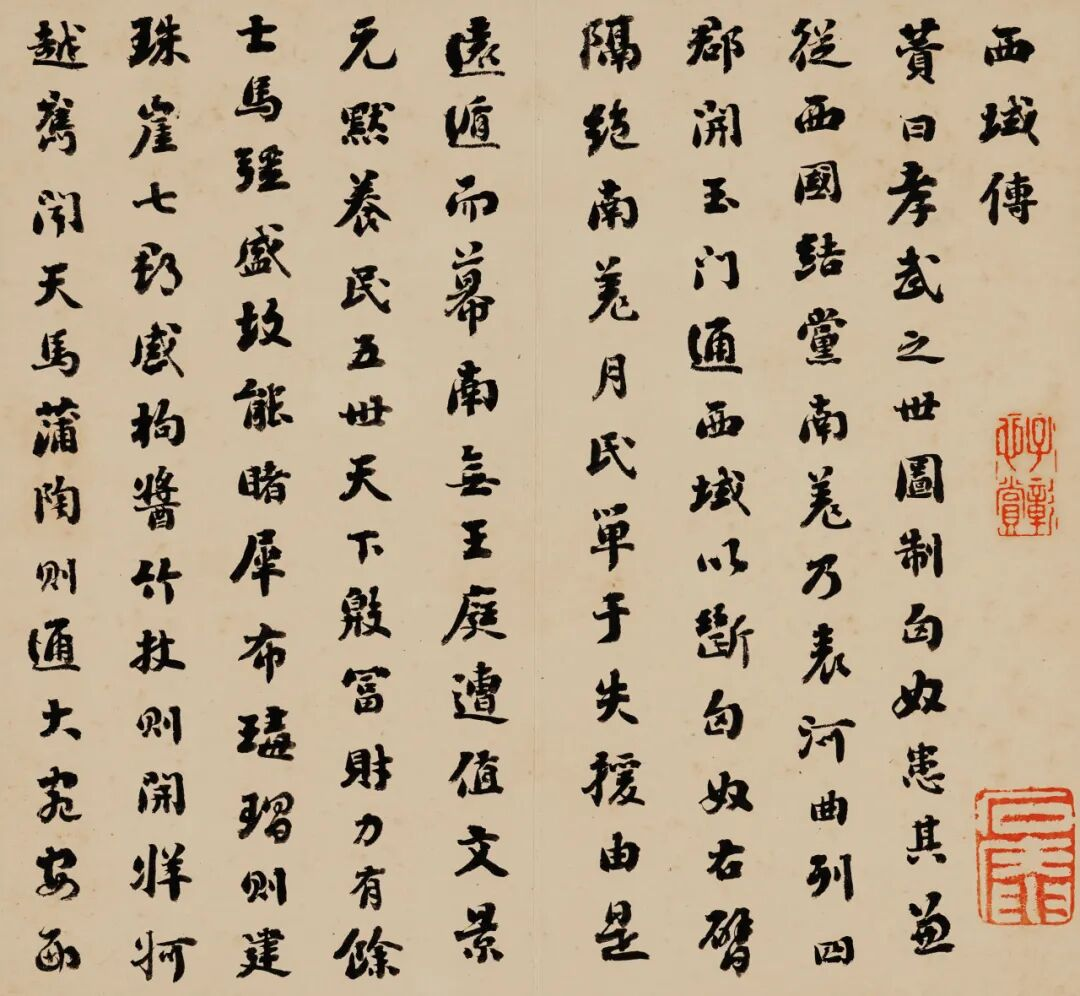 西域傳
賛曰孝武之世圖制匈奴患其兼
從西國結黨南羌乃表河曲列四
郡開玉門通西域以斷匈奴右臂
隔絶南羌月氏單于失援由是
遠遁而幕南無王庭遭值文景
元黙養民五世天下殷富財力有餘
士馬彊盛故能睹犀布瑇瑁則建
珠崖七郡感枸醬竹杖則開牂牁
越嶲聞天馬蒲陶則通大宛安西